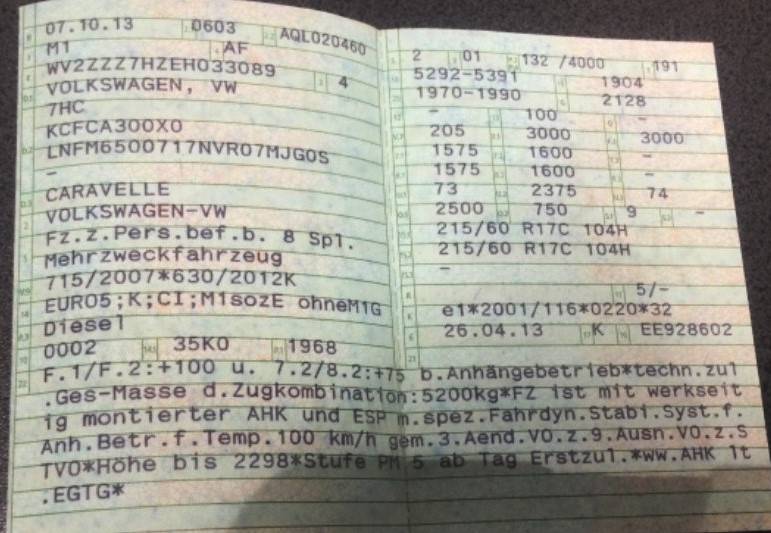 07.10.13 0603 AQL020460
M1 AF
WV2ZZZ7HZEH033089 4
VOLKSWAGEN, VW
7HC
KCFCA300X0
LNFM6500717NVR07MJG0S
-
CARAVELLE
VOLKSWAGEN-VW
Fz.z.Pers.bef.b. 8 Spl.
Mehrzweckfahrzeug
715/2007*630/2012K
EURO5;K;CI;M1sozE ohneM1G
Diesel
0002 35K0 1968
2 01 132 /4000 191
5292-5391 1904
1970-1990 2128
- 100 -
205 3000 3000
1575 1600 -
1575 1600 -
73 2375 74
2500 750 9 -
215/60 R17C 104H
215/60 R17C 104H
-
5/-
e1*2001/116*0220*32
26.04.13 K EE928602
F.1/F.2:+100 u. 7.2/8.2:+75 b.Anhängebetrieb*techn.zul
.Ges-Masse d.Zugkombination:5200kg*FZ ist mit werkseit
ig montierter AHK und ESP m.spez.Fahrdyn.Stabi.Syst.f.
Anh.Betr.f.Temp.100 km/h gem.3.Aend.VO.z.9.Ausn.VO.z.S
TVO*Höhe bis 2298*Stufe PM 5 ab Tag Erstzul.*ww.AHK lt
.EGTG*